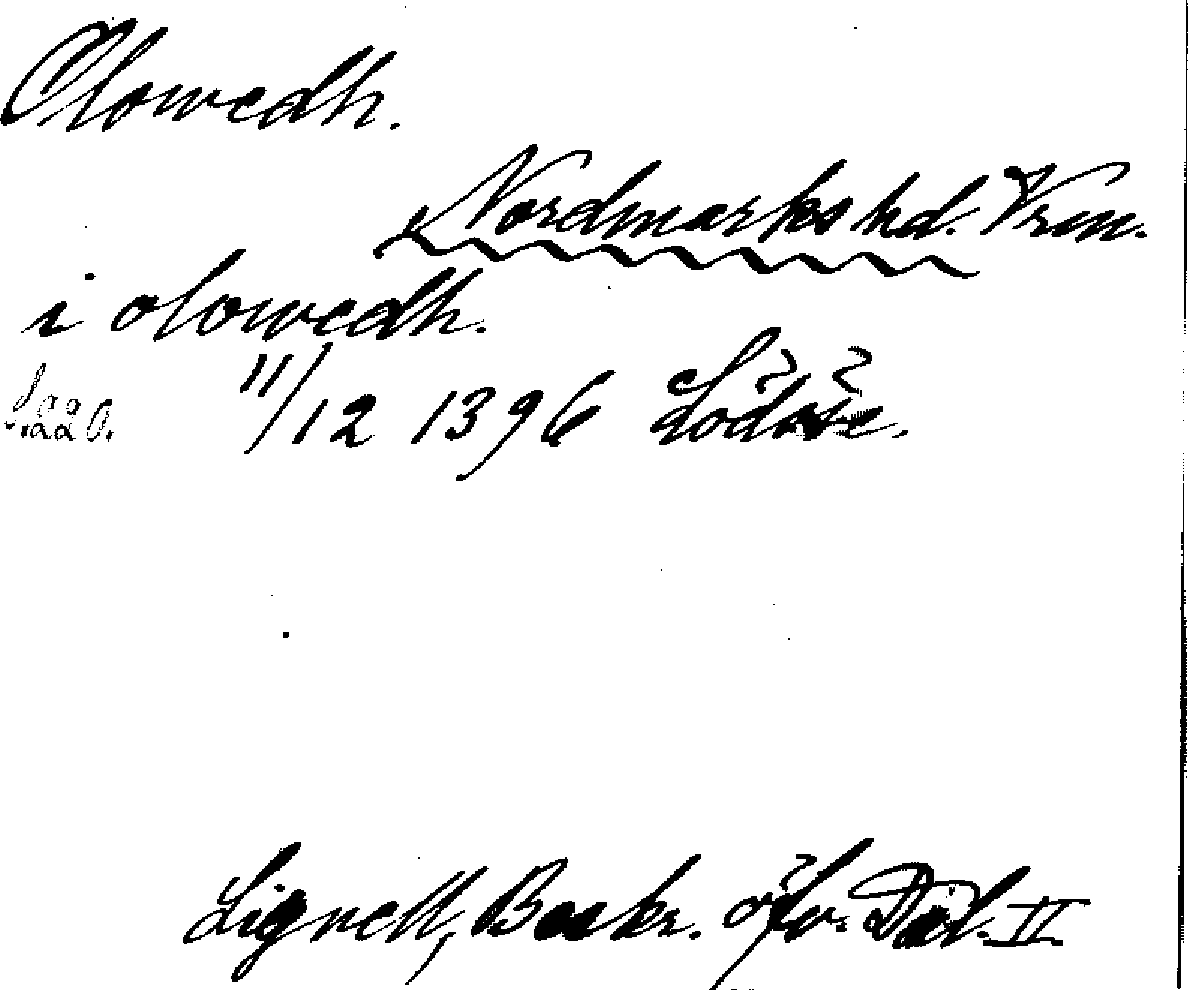 Olowedh.
Nordmarks hd. Vrm.
i olowedh.
S. 220. 11/12 1396 Lödöse.
Lignell, Beskr. öfv. Dal. II.